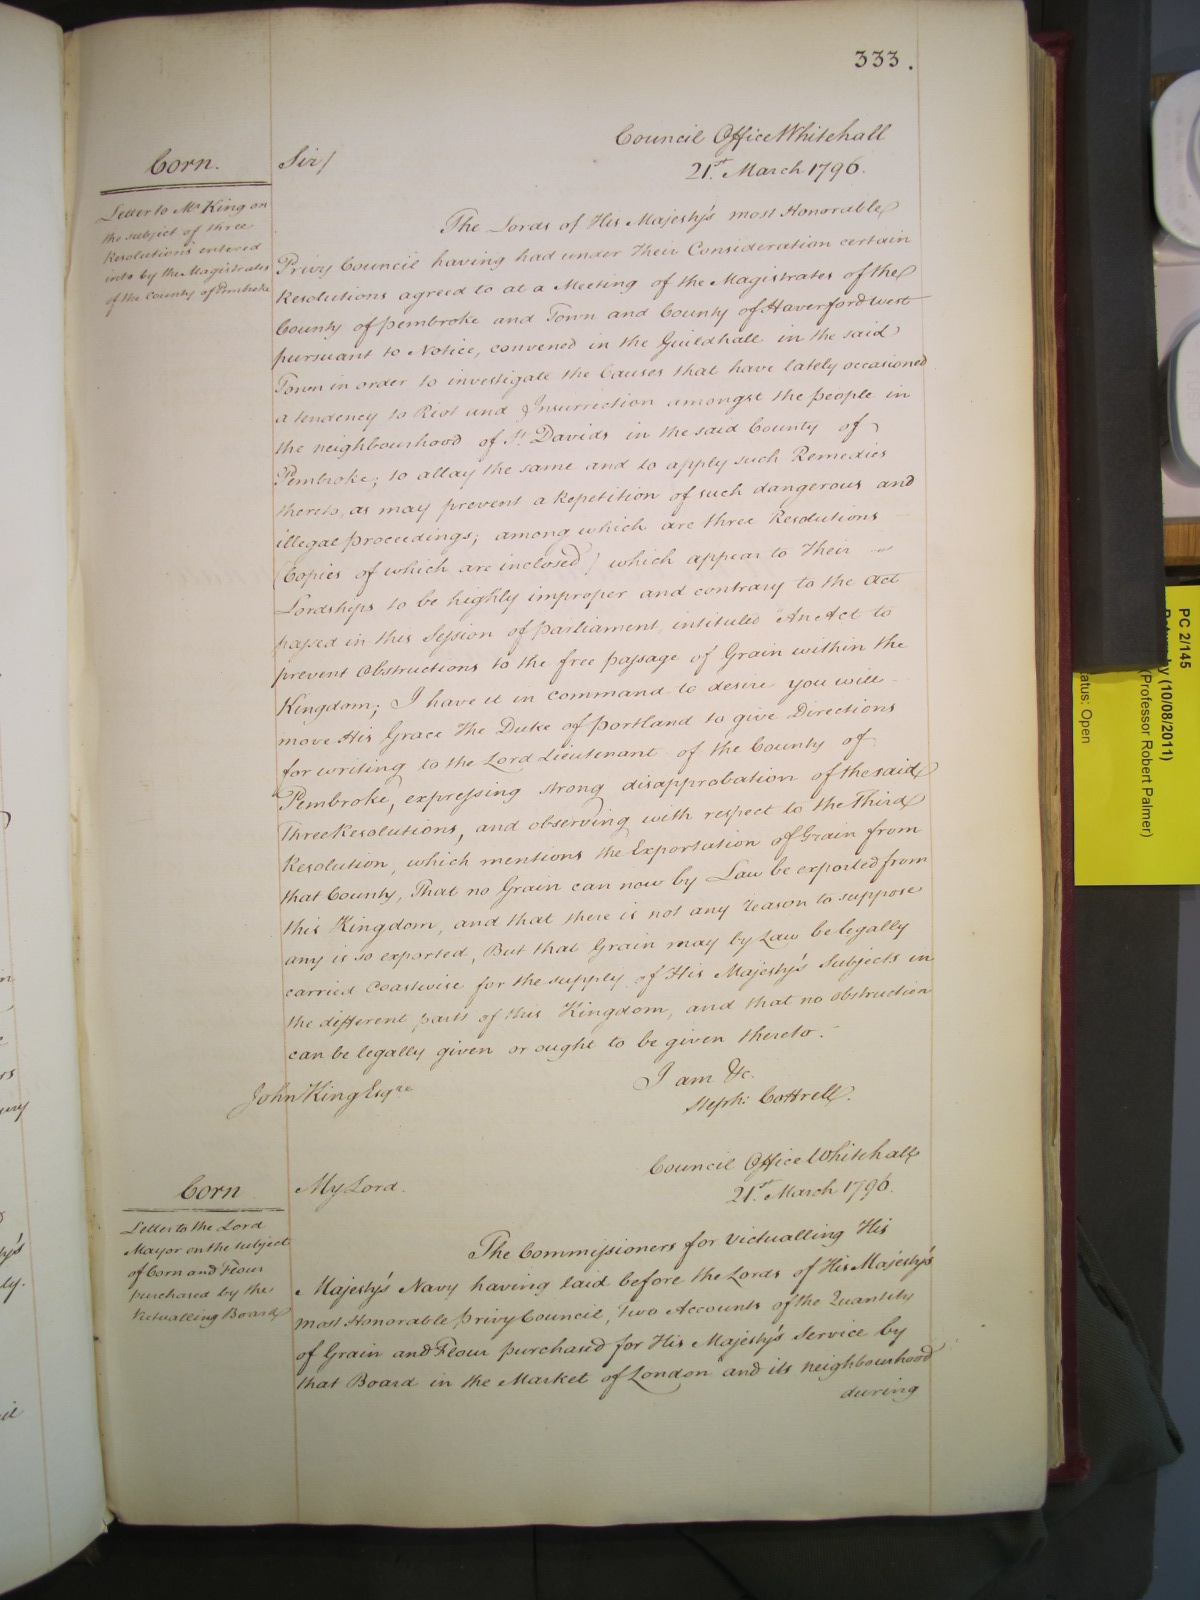 333.
Council Office Whitehall
21st. March 1796.
Corn.
Letter to Mr King on
the subject of three
Resolutions entered
into by the Magistrates
of the County of Pembroke
Sir/
The Lords of His Majesty's most Honorable
Privy Council having had under Their Consideration certain
Resolutions agreed to at a Meeting of the Magistrates of the
County of Pembroke and Town and County of Haverfordwest
pursuant to Notice, convened in the Guildhall in the said
Town in order to investigate the Causes that have lately occasioned
a tendency to Riot and Insurrection amongst the people in
the neighbourhood of St. Davids in the said County of
Pembroke; to allay the same and to apply such Remedies
thereto, as may prevent a Repetition of such dangerous and
illegal proceedings; among which are three Resolutions
(Copies of which are inclosed) which appear to Their
Lordships to be highly improper and contrary to the Act
passed in this Session of Parliament, intituled "An Act to
prevent Obstructions to the free passage of Grain within the
Kingdom; I have it in command to desire you will
move His Grace The Duke of Portland to give Directions
for writing to the Lord Lieutenant of the County of
Pembroke, expressing strong disapprobation of the said
Three Resolutions, and observing with respect to the Third
Resolution, which mentions the Exportation of Grain from
that County, That no Grain can now by Law be exported from
this Kingdom, and that there is not any reason to suppose
any is so exported, But that Grain may by Law be legally
carried Coastwise for the supply of His Majesty's Subjects in
the different parts of this Kingdom, and that no obstruction
can be legally given or ought to be given thereto.
I am &c.
Steph: Cottrell.
John King Esqre
Council Office Whitehall
21st. March 1796.
Corn
Letter to the Lord
Mayor on the subject
of Corn and Flour
purchased by the
Victualling Board
My Lord.
The Commissioners for Victualling His
Majesty's Navy having laid before the Lords of His Majesty's
most Honorable Privy Council, two Accounts of the Quantity
of Grain and Flour purchased for His Majesty's Service by
that Board in the Market of London and its neighbourhood
during
PC 2/145
(10/08/2011)
(Professor Robert Palmer)
Open